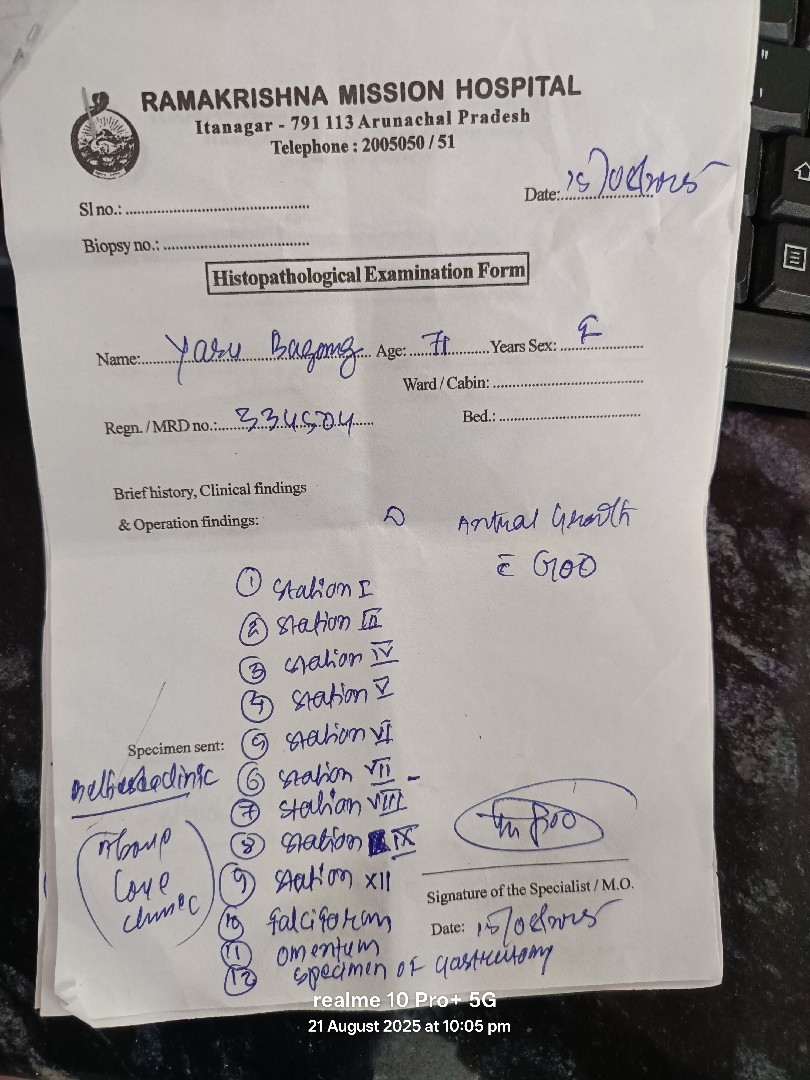 RAMAKRISHNA MISSION HOSPITAL
Itanagar - 791 113 Arunachal Pradesh
Telephone : 2005050 / 51
Date: 15/08/2025
Sl no.:
Biopsy no.:
Histopathological Examination Form
Name: Yasu Age: 71 Years Sex: F
Ward / Cabin:
Regn. / MRD no.: 334504 Bed.:
Brief history, Clinical findings
& Operation findings: Antral Growth
c̄ GOO
① Station I
② Station III
③ Station IV
④ Station V
⑤ Station VI
Specimen sent:
⑥ Station VII
⑦ Station VIII
⑧ Station IX
⑨ Station XII
Signature of the Specialist / M.O.
Date: 15/08/2025
10 falciforam
11 omentum
12 specimen of Gastrectomy
clinic
realme 10 Pro+ 5G
21 August 2025 at 10:05 pm